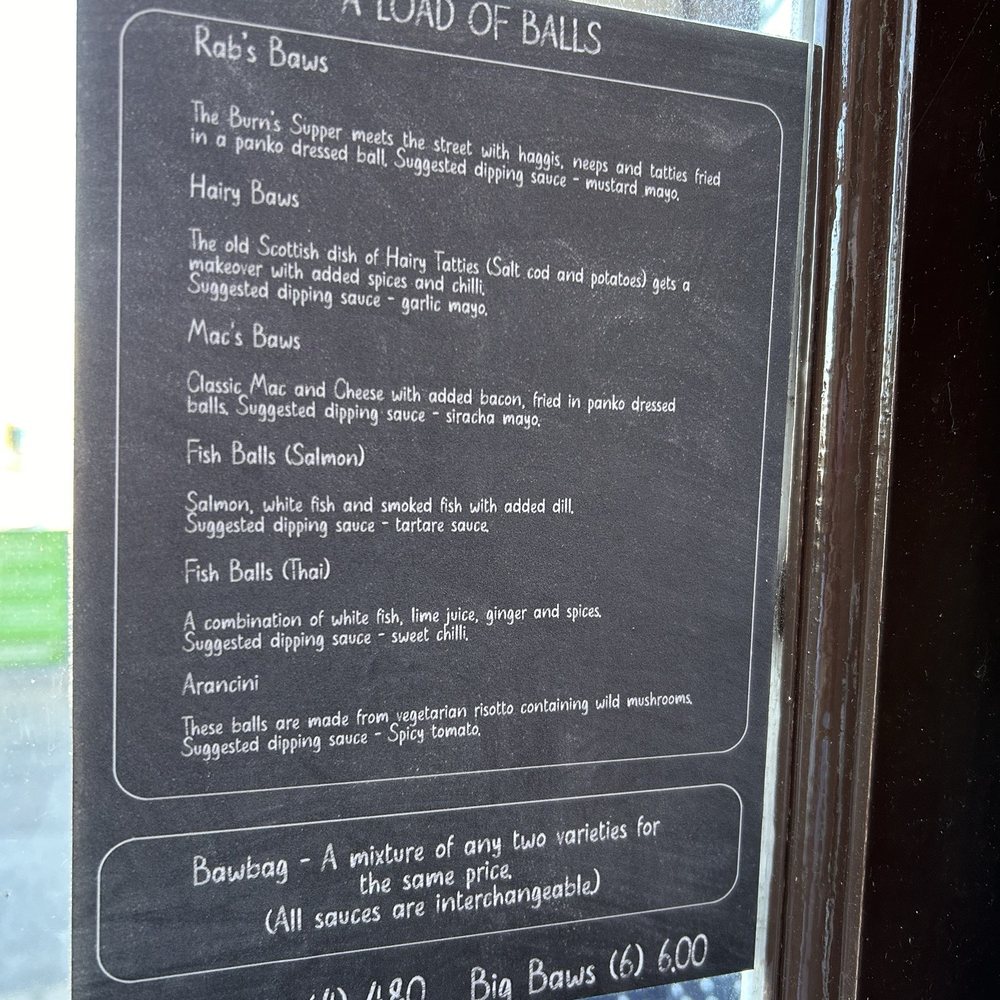 A LOAD OF BALLS
Rab's Baws
The Burn's Supper meets the street with haggis, neeps and tatties fried
in a panko dressed ball. Suggested dipping sauce - mustard mayo.
Hairy Baws
The old Scottish dish of Hairy Tatties (Salt cod and potatoes) gets a
makeover with added spices and chilli.
Suggested dipping sauce - garlic mayo.
Mac's Baws
Classic Mac and Cheese with added bacon, fried in panko dressed
balls. Suggested dipping sauce - siracha mayo.
Fish Balls (Salmon)
Salmon, white fish and smoked fish with added dill.
Suggested dipping sauce - tartare sauce.
Fish Balls (Thai)
A combination of white fish, lime juice, ginger and spices.
Suggested dipping sauce - sweet chilli.
Arancini
These balls are made from vegetarian risotto containing wild mushrooms.
Suggested dipping sauce - Spicy tomato.
Bawbag - A mixture of any two varieties for
the same price.
(All sauces are interchangeable)
(4) 4.80 Big Baws (6) 6.00